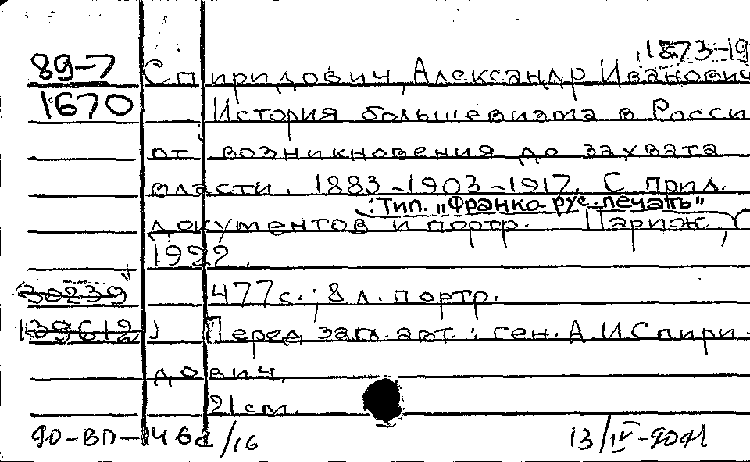 1873-19
89-7 Спиридович, Александр Иванович
1670 История большевизма в Росси
от возникновения до захвата
власти. 1883-1903-1917. С прил.
: Тип. „Франко-рус. печать"
документов и портр. Париж,
1922.
30239 477 с.; 8 л. портр.
139612 Перед загл. авт.: ген. А.И Спири-
дович.
21 см.
90-ВП-146 /16 13/IV-90